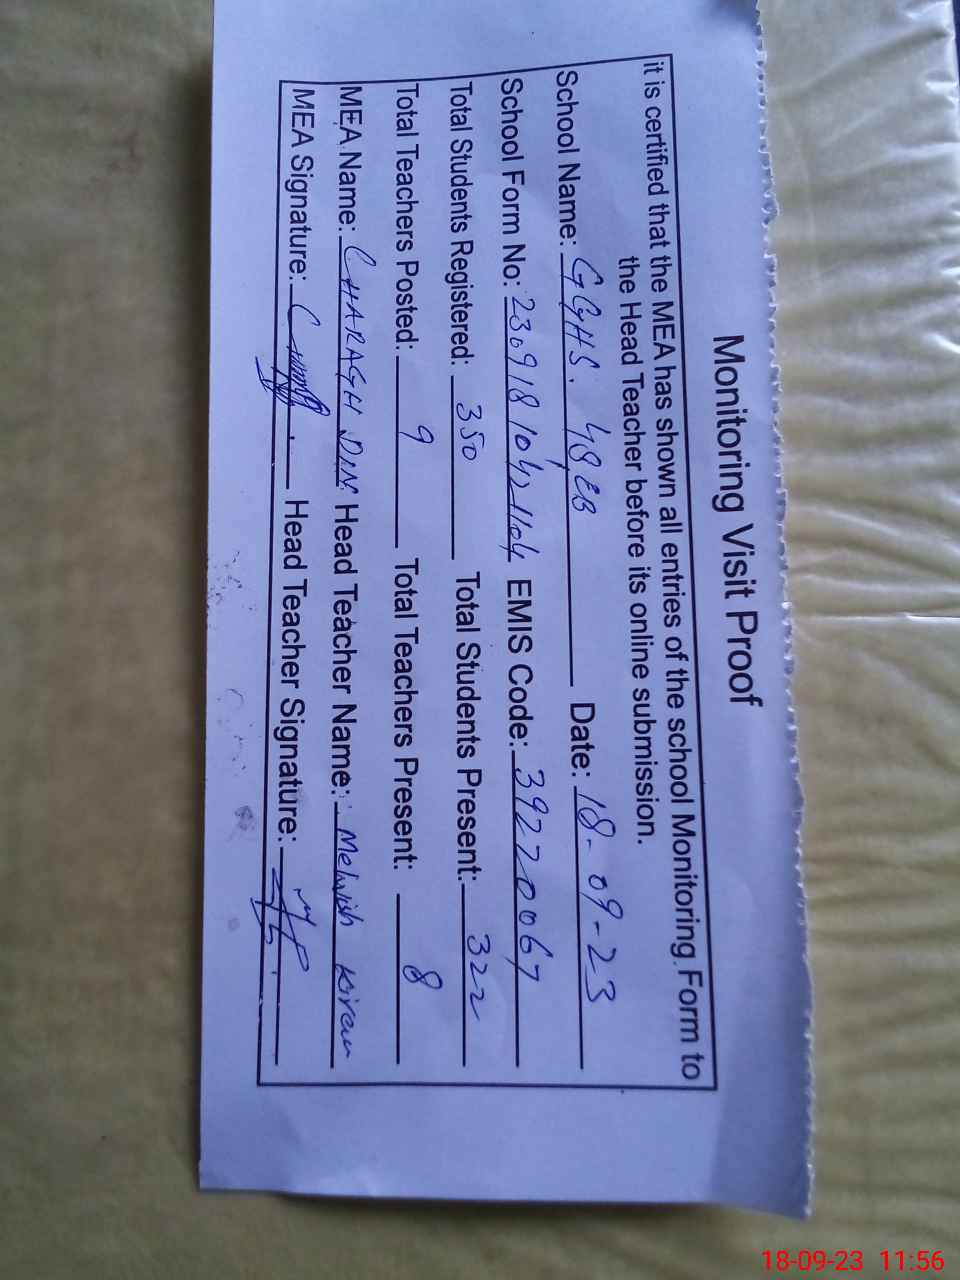 Monitoring Visit Proof
it is certified that the MEA has shown all entries of the school Monitoring Form to
the Head Teacher before its online submission.
School Name: GGHS. 48 EB Date: 18-09-23
School Form No: EMIS Code: 39220067
Total Students Registered: 350 Total Students Present: 322
Total Teachers Posted: 9 Total Teachers Present: 8
MEA Name: CHARAGH DIN Head Teacher Name: Mehwish Kiran
MEA Signature: Head Teacher Signature:
18-09-23 11:56